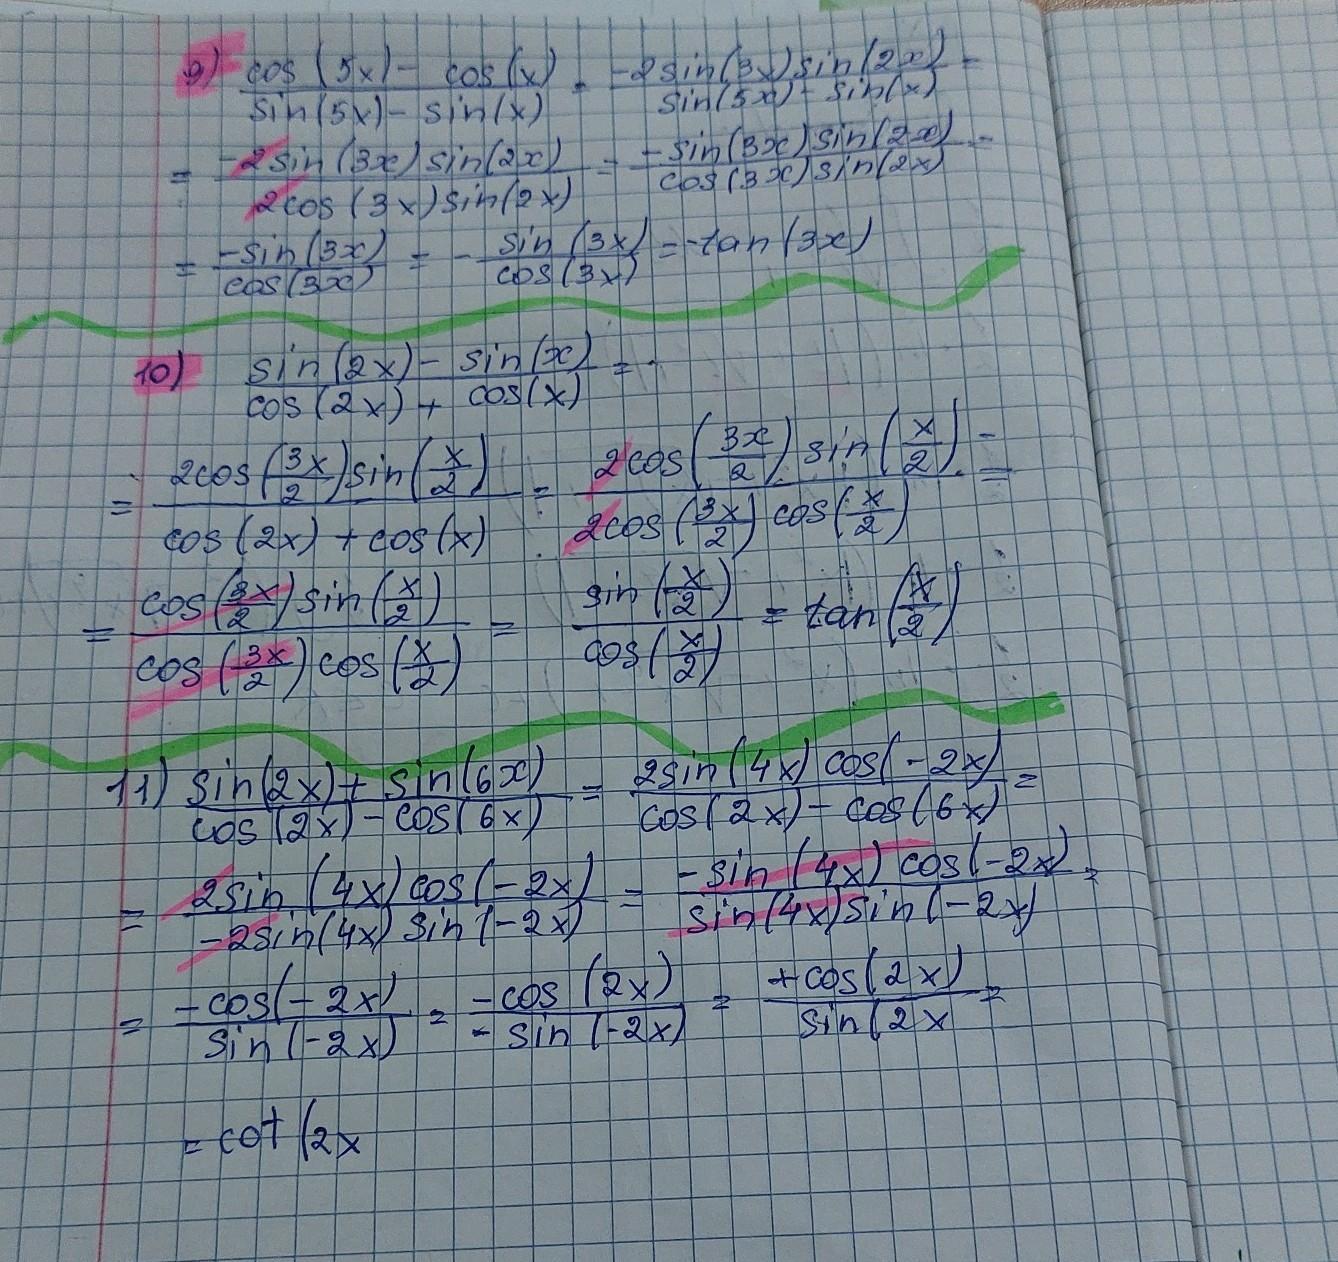 9) (cos(5x) - cos(x))/(sin(5x) - sin(x)) = (-2sin(3x)sin(2x))/(sin(5x) - sin(x)) =
= (-2sin(3x)sin(2x))/(2cos(3x)sin(2x)) = (-sin(3x)sin(2x))/(cos(3x)sin(2x)) =
= (-sin(3x))/(cos(3x)) = - (sin(3x))/(cos(3x)) = -tan(3x)
10) (sin(2x) - sin(x))/(cos(2x) + cos(x)) =
= (2cos(3x/2)sin(x/2))/(cos(2x) + cos(x)) = (2cos(3x/2)sin(x/2))/(2cos(3x/2)cos(x/2)) =
= (cos(3x/2)sin(x/2))/(cos(3x/2)cos(x/2)) = (sin(x/2))/(cos(x/2)) = tan(x/2)
11) (sin(2x) + sin(6x))/(cos(2x) - cos(6x)) = (2sin(4x)cos(-2x))/(cos(2x) - cos(6x)) =
= (2sin(4x)cos(-2x))/(-2sin(4x)sin(-2x)) = (-sin(4x)cos(-2x))/(sin(4x)sin(-2x)) =
= (-cos(-2x))/(sin(-2x)) = (-cos(2x))/(-sin(-2x)) = (+cos(2x))/(sin(2x) =
= cot(2x